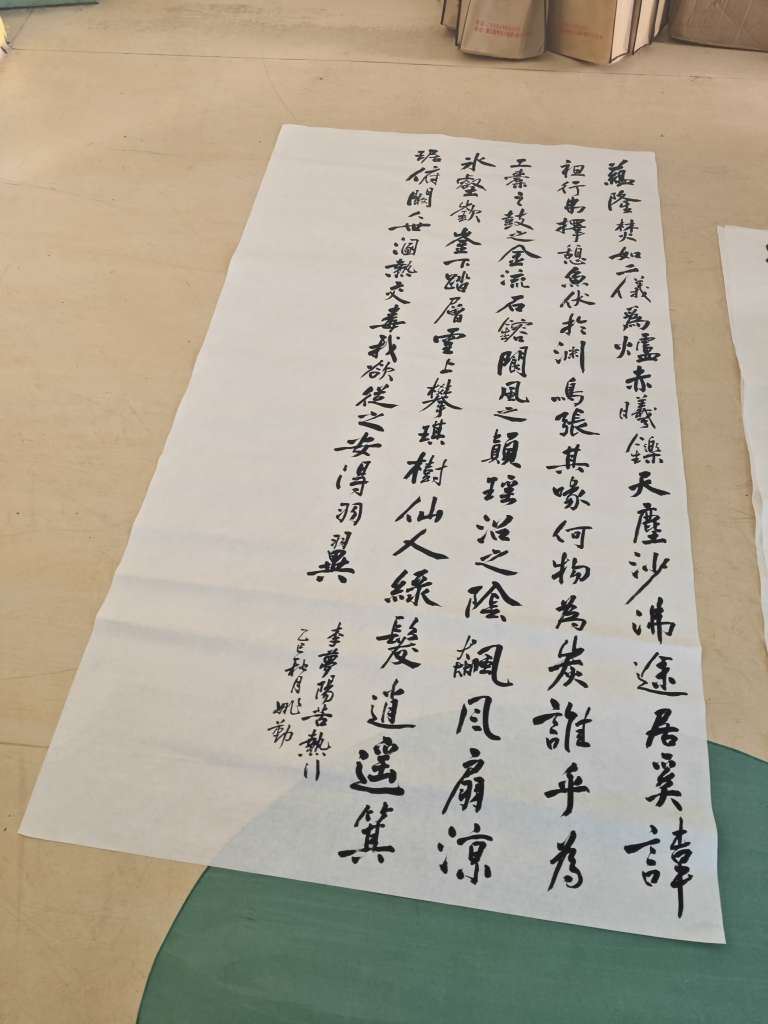 蘊隆焚如二儀為爐赤曦鑠天塵沙沸途居奚諱
袒行弗擇憩魚伏於淵鳥張其喙何物為炭誰乎為
工橐之鼓之金流石鎔閬風之顛瑤沼之陰飆風扇涼
冰壑嵚崟下踏層雪上攀琪樹仙人綠髮逍遥箕
踞俯闞人世溷熱交毒我欲從之安得羽翼
李夢陽苦熱行
乙巳秋月姚勤